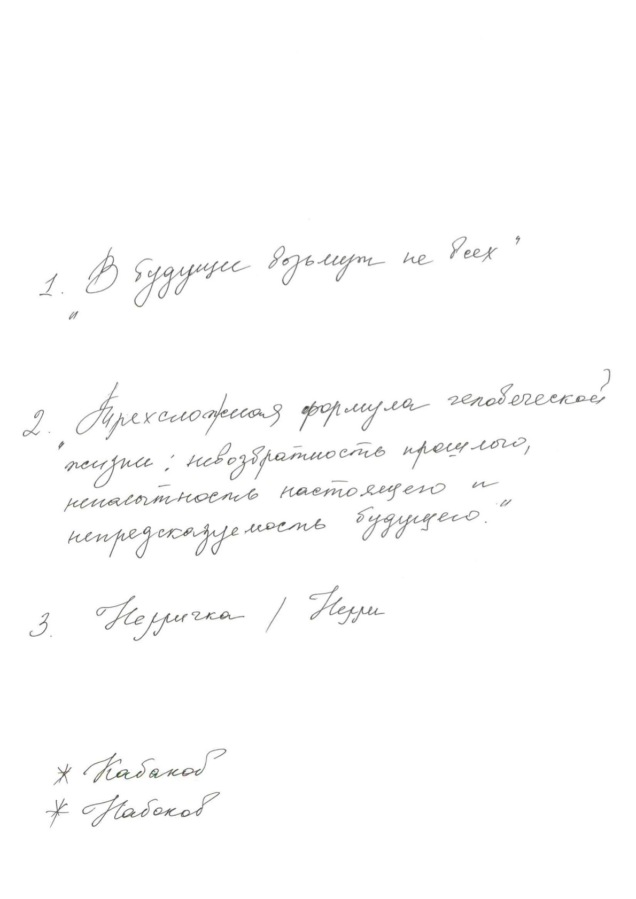 1. "В будущее возьмут не всех"
2. "Трехсложная формула человеческой
жизни: невозвратность прошлого,
ненасытность настоящего и
непредсказуемость будущего."
3. /
* Кабаков
* Набоков